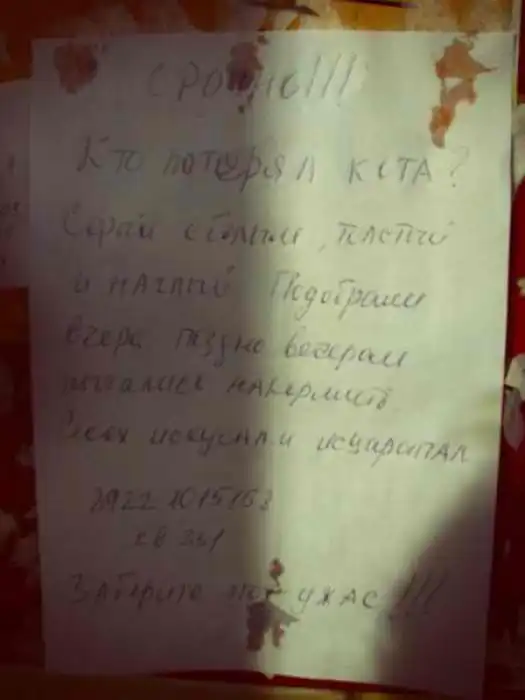 СРОЧНО!!!
Кто потерял кота?
Серый с белым, пястый
и наглый Подобрали
вчера поздно вечером
пытались накормить
всех искусал и исцарапал
кв 331
Заберите этот ужас!!!